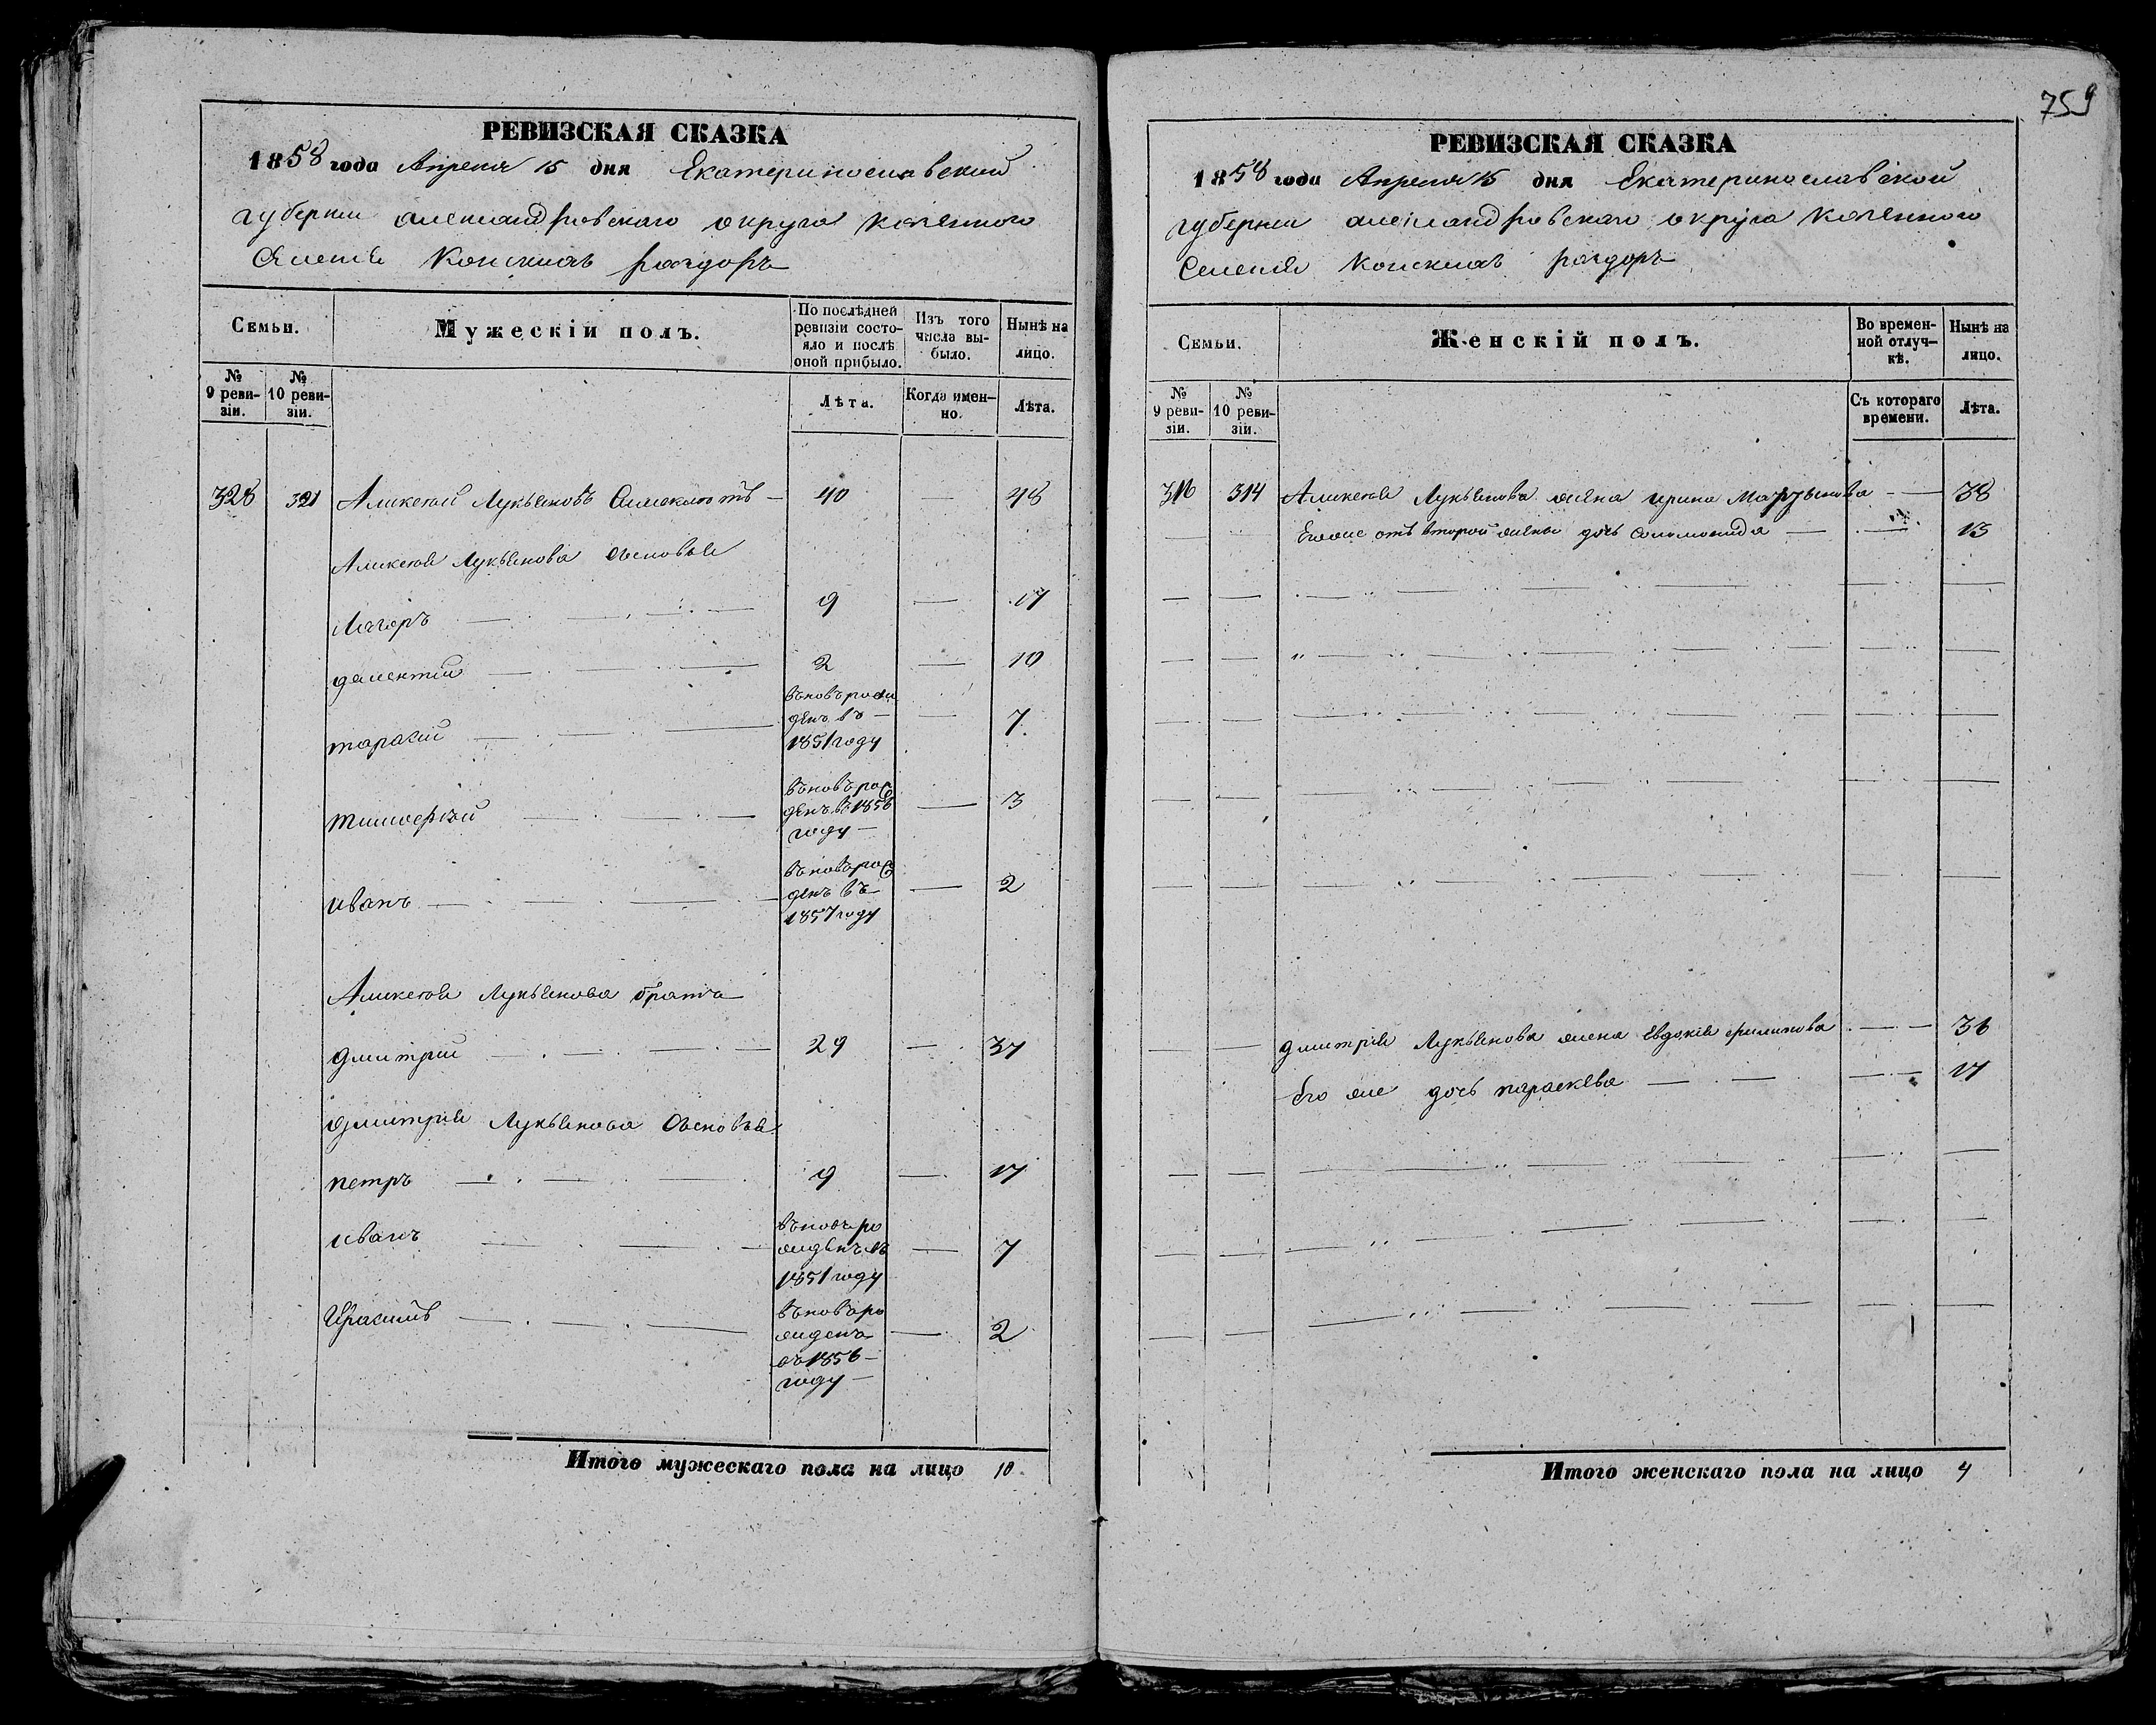 759
РЕВИЗСКАЯ СКАЗКА
1858 года Апреля 15 дня Екатеринославской
губернии александровскаго округа казенного
Селенія Конскихъ раздоръ
Семьи. Мужескій полъ. По послѣдней ревизіи состояло и послѣ оной прибыло. Изъ того числа выбыло. Нынѣ на лицо.
№ 9 ревизіи. № 10 ревизіи. Лѣта. Когда именно. Лѣта.
328 321 Аликсѣй Лукьяновъ — 40 — 48
Аликсѣя Лукьянова Сыновья
Лазоръ — 9 — 17
— 2 — 10
тарасій — вновь рожденъ въ — 1851 году — 7
тимофѣй — вновь рожденъ въ 1856 году — 3
иванъ — вновь рожденъ въ 1857 году — 2
Аликсѣя Лукьянова братъ
дмитрій — 29 — 37
дмитрія Лукьянова Сыновья
петръ — 9 — 17
иванъ — вновь рожденъ въ 1851 году — 7
— вновь рожденъ въ 1856 году — 2
Итого мужескаго пола на лицо 10
РЕВИЗСКАЯ СКАЗКА
1858 года Апреля 15 дня Екатеринославской
губерніи александровскаго округа казенного
Селенія Конскихъ раздоръ
Семьи. Женскій полъ. Во временной отлучкѣ. Нынѣ на лицо.
№ 9 ревизіи. № 10 ревизіи. Съ котораго времени. Лѣта.
316 314 Аликсѣя Лукьянова жена ирина Мартынова — 38
Егоже отъ второй жены дочь Соломонида — 13
дмитрія Лукьянова жена Евдокія филипова — 36
Его же дочь параскева — 17
Итого женскаго пола на лицо 4